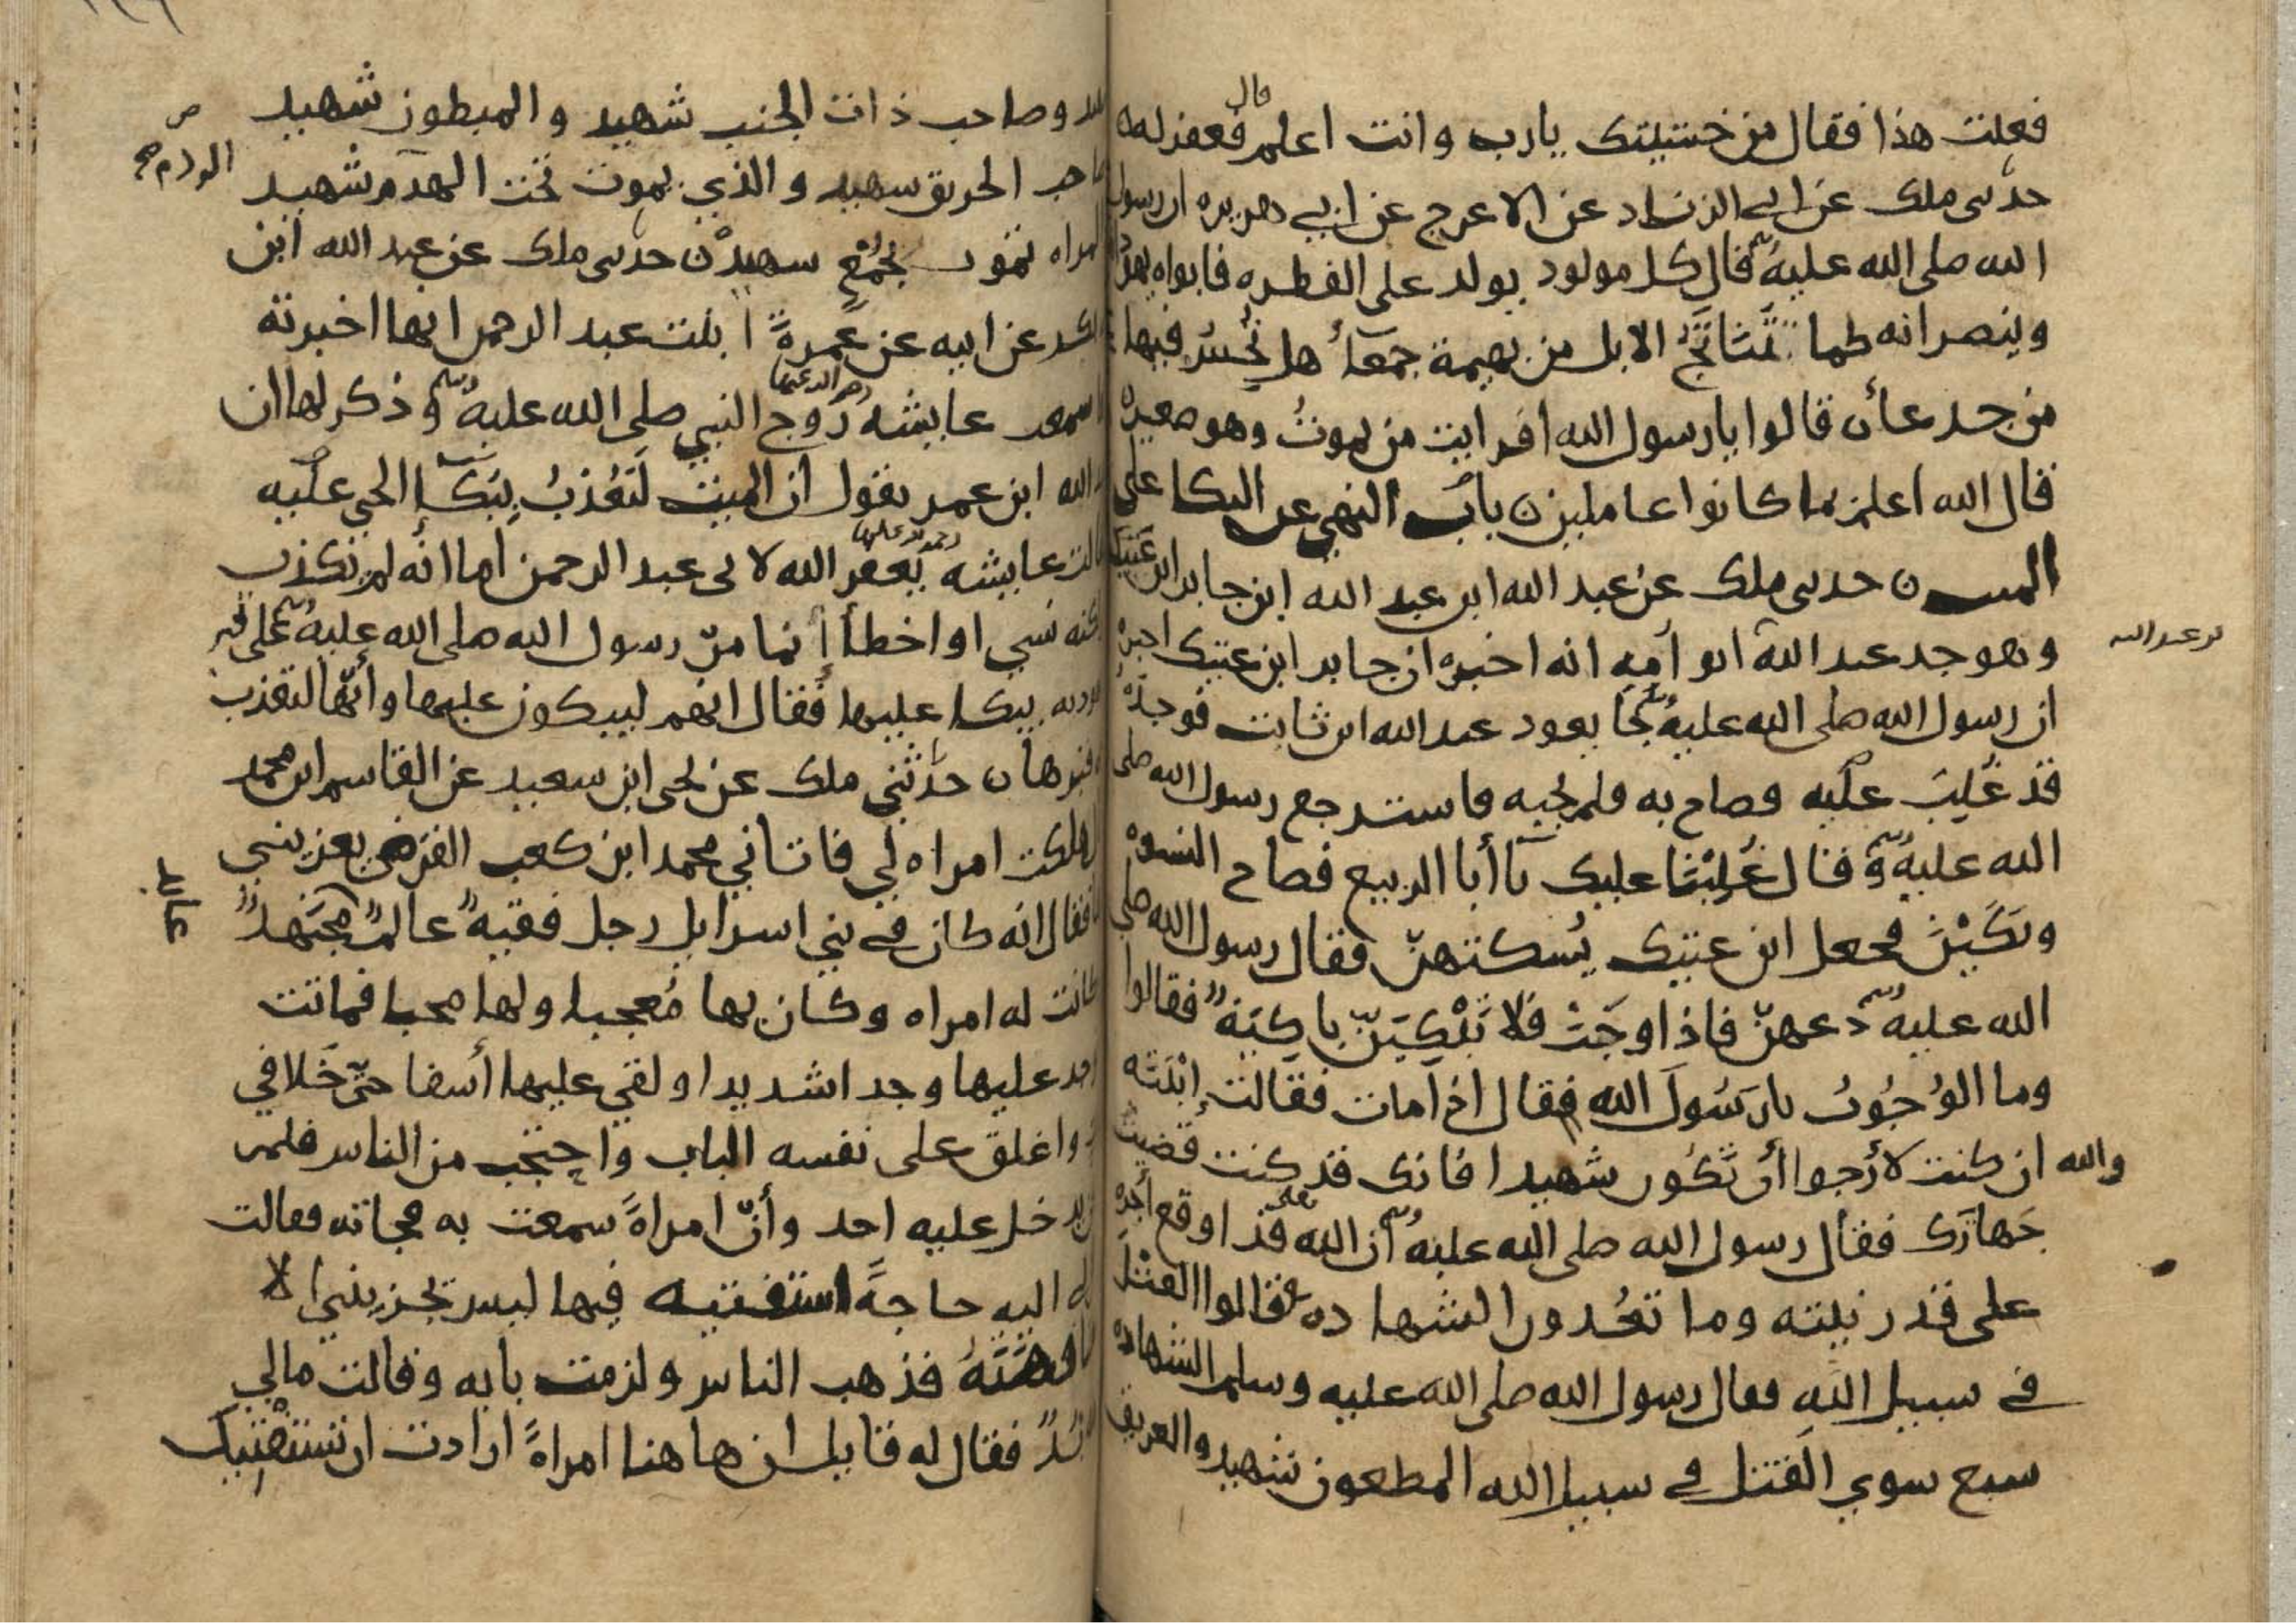 فعلت هذا فقال من خشيتك يارب وانت اعلم قال فغفر له
حدثنى ملك عن ابي الزناد عن الاعرج عن ابي هريره ان رسول
الله صلى الله عليه وسلم قال كل مولود يولد على الفطره فابواه يهود
وينصرانه كما تَتَناتَجُ الابل من بهيمة جمعآء هل تُحسُّ فيها
من جدعآن قالوا يا رسول الله افرايت من يموتُ وهو صغيره
قال الله اعلم بما كانوا عاملين ن باب النهي عن البكا على
الميت ن حدثنى ملك عن عبد الله ابن عبد الله ابن جابر ابن عَتيك
وهو جد عبد الله ابو اُمِهِ انه اخبره ان جابر ابن عتيك اخبره
بن عبد الله
ان رسول الله صلى الله عليه وسلم جا يعود عبد الله ابن ثابت فوجدَهُ
قد غُلِبَ عليه فصاح به فلم يجبه فاسترجع رسول الله صلى
الله عليه وسلم وقال غُلِبْنا عليك يآ أبا الربيع فصاح النسوه
وبَكَيْنَ فجعل ابن عتيك يُسكتهنّ فقال رسول الله صلى
الله عليه وسلم دعهنّ فاذا وجَبَ فلا تَبْكِيَنّ باكِيَةٌ فقالوا
وما الوُجُوبُ يا رَسُولَ الله فقال اذا مات فقالت إبْنَتُه
والله ان كنت لأرجوا أن تكون شهيدا فانك قد كنت قضيت
جَهازَك فقال رسول الله صلى الله عليه وسلم أن الله تعلى قد اوقع اجره
على قدر نيته وما تعُدون الشهادة قالوا القتل
في سبيل الله فقال رسول الله صلى الله عليه وسلم الشهاده
سبع سوي القتل في سبيل الله المطعون شهيد والغريق
وصاحب ذات الجنب شهيد والمبطون شهيد
الحريق شهيد والذي يموت تحت الهدم شهيد
تموت بجُمْعٍ شهيدٌ ن حدثنى ملك عن عبد الله ابن
عن ابيه عن عَمرةَ ابنت عبد الرحمن انها اخبرته
عايشه رضي الله عنها زوج النبي صلى الله عليه وسلم وذكر لها ان
الله ابن عمر يقول ان الميت لَيُعَذبُ بِبُكآ الحي عليه
عايشه رحمة الله عليها يغفر الله لابى عبد الرحمن أما انّه لم يكذب
نسي او اخطأ إنما مرّ رسول الله صلى الله عليه وسلم على قبر
يبكا عليها فقال انهم ليبكون عليها وأنّها لتعذب
ن حدّثني ملك عن يحى ابن سعيد عن القاسم ابن محمد
هلكت امراه لي فاتاني محمد ابن كعب القرظي يعزيني
فقال انه كان في بني اسرايل رجل فقيهٌ عالمٌ مجتهدٌ
عابد
كانت له امراه وكان بها مُعجبا ولها محبا فماتت
عليها وجدا شديدا ولقي عليها أسفا حتّى خلا في
واغلق على نفسه الباب واحتجب من الناس فلم
يدخل عليه احد وأنّ امراةً سمعت به فجاته فقالت
اليه حاجةً استفتيه فيها ليس تجزيني الا
فذهب الناس ولزمت بابه وقالت مالي
بُدٌّ فقال له قايل ان هاهنا امراةً ارادت ان تستفتيك